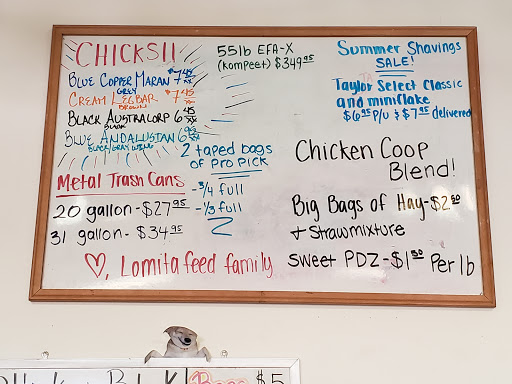 CHICKS!!
BLUE COPPER MARAN $7.45
GREY
CREAM LEGBAR $7.45
BROWN
BLACK AUSTRALORP 6.45
BLACK
BLUE ANDALUSIAN 6.95
BLACK/GRAY WING
55lb EFA-X
(Kompeet) $349.95
2 taped bags
of Pro PICK
-3/4 full
-1/3 full
Metal Trash Cans
20 gallon-$27.95
31 gallon-$34.95
♡, Lomita feed family
Summer Shavings
SALE!
Taylor Select Classic
and miniflake
$6.95 P/U & $7.95 delivered
Chicken Coop
Blend!
Big Bags of Hay-$2.50
+ Strawmixture
Sweet PDZ-$1.50 Per lb
$5